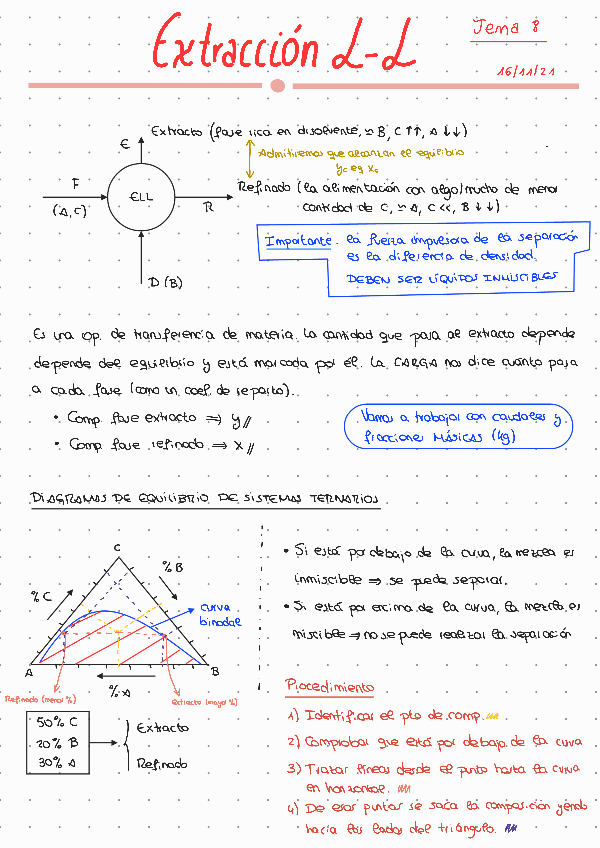 Extracción L-L
Tema 8
16/11/21
Extracto (fase rica en disolvente, ≃ B, C ↑↑, A ↓↓)
E
Admitiremos que alcanzan el equilibrio
F
(A, C)
ELL
R
Refinado (la alimentación con algo/mucho de menor
cantidad de C, ≃ A, C <<, B ↓↓)
D (B)
Importante. la fuerza impulsora de la separación
es la diferencia de densidad.
DEBEN SER LÍQUIDOS INMISCIBLES
Es una op. de transferencia de materia. La cantidad que pasa al extracto depende
depende del equilibrio y está marcada por él. La CARGA nos dice cuánto pasa
a cada fase (como un coef. de reparto).
• Comp. fase extracto ⇒ y//
• Comp. fase refinado ⇒ x//
Vamos a trabajar con caudales y
fracciones MÁSICAS (kg)
DIAGRAMAS DE EQUILIBRIO DE SISTEMAS TERNARIOS
C
% B
% C
curva
binodal
A
B
% A
Refinado (menor %)
Extracto (mayor %)
50% C
20% B
30% A
Extracto
Refinado
• Si está por debajo de la curva, la mezcla es
inmiscible ⇒ se puede separar.
• Si está por encima de la curva, la mezcla es
miscible ⇒ no se puede realizar la separación
Procedimiento
1) Identificar el pto de comp.
2) Comprobar que está por debajo de la curva
3) Trazar líneas desde el punto hasta la curva
en horizontal.
4) De esos puntos se saca la composición yendo
hacia los lados del triángulo.